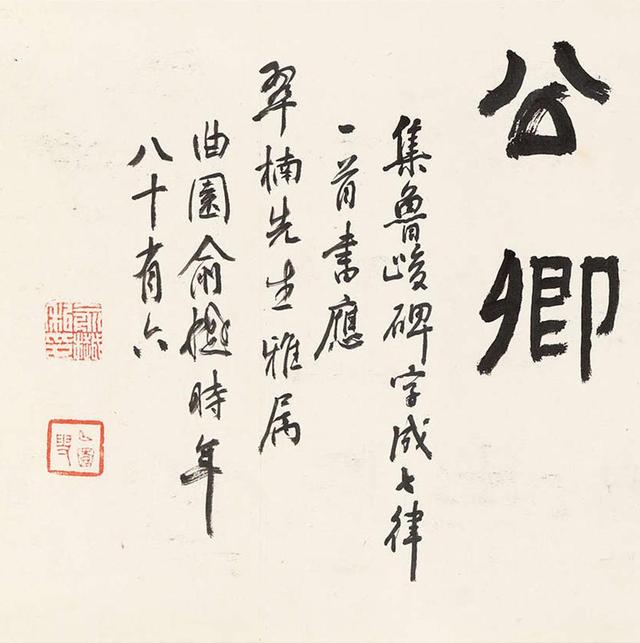 公卿
集魯峻碑字成七律
一首書應
翠楠先生雅屬
曲園俞樾時年
八十有六
俞樾私印
曲園叟